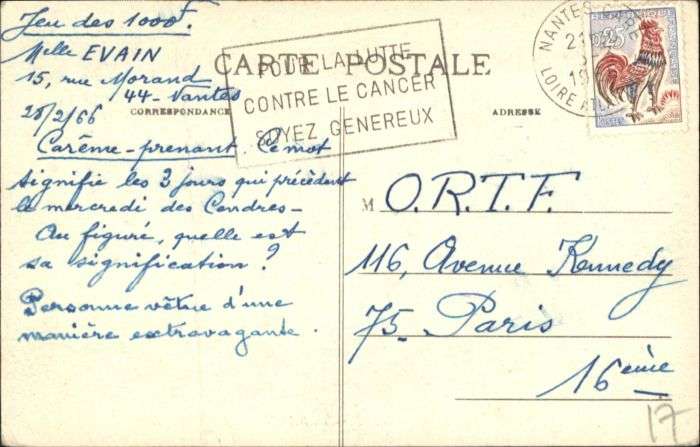 Jeu des 1000F.
Melle EVAIN
15, rue Morand
44-Nantes
28/2/66
CARTE POSTALE
CORRESPONDANCE
ADRESSE
POUR LA LUTTE
CONTRE LE CANCER
SOYEZ GENEREUX
NANTES GARE
21
19
LOIRE ATLAN
0,25
Carême-prenant. Ce mot
signifie les 3 jours qui précèdent
le mercredi des Cendres-
Au figuré, quelle est
sa signification ?
Personne vêtue d'une
manière extravagante.
M O.R.T.F.
116, Avenue Kennedy
75- Paris
16ème
17